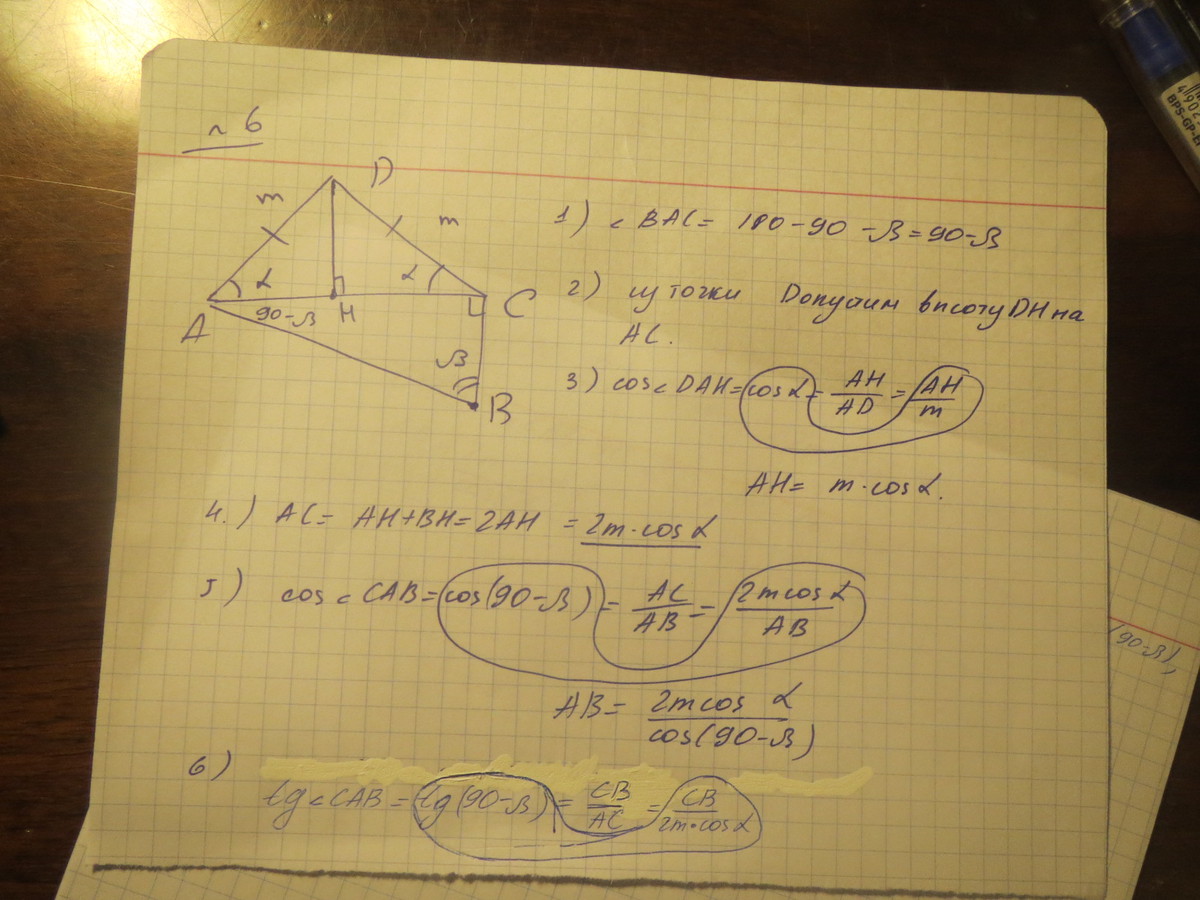 № 6
D
m
m
α
α
H
C
A
90-β
β
B
1) < BAC = 180 - 90 - β = 90-β
2) из точки D опустим высоту DH на
AC.
3) cos < DAH = cos α = AH/AD = AH/m
AH = m·cos α.
4.) AC = AH+BH = 2AH = 2m·cos α
5) cos < CAB = cos(90-β) = AC/AB = 2m cos α/AB
AB = 2m cos α/cos(90-β)
6)
tg < CAB = tg(90-β) = CB/AC = CB/2m·cos α
(90-β),
BPS-GP-